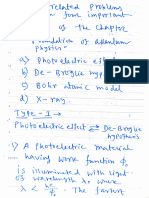 related problems
from four important
of the Chapter
Foundation of Quantum
physics"
a) Photoelectric effect
b) De-Broglie hyp
c) Bohr atomic model
d) X-ray.
Type-1 →
Photoelectric effect ⇌ De-Broglie
hypothesis
1) A Photoelectric material
having work function ϕ0
is illuminated with light
of wavelength λ where
λ < hc/ϕ0. The fastest